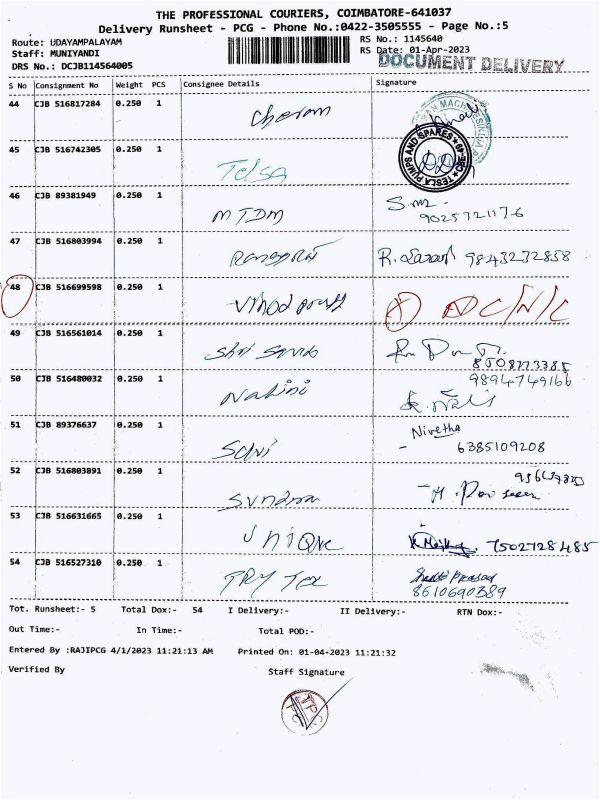 THE PROFESSIONAL COURIERS, COIMBATORE-641037
Delivery Runsheet - PCG - Phone No.:0422-3505555 - Page No.:5
Route: UDAYAMPALAYAM RS No.: 1145640
Staff: MUNIYANDI RS Date: 01-Apr-2023
DRS No.: DCJB114564005 DOCUMENT DELIVERY
S No Consignment No Weight PCS Consignee Details Signature
44 CJB 516817284 0.250 1 Cheram
45 CJB 516742305 0.250 1 Telsa
TESLA PUMPS AND SPARES
46 CJB 89381949 0.250 1 MTDM
9025721176
47 CJB 516803994 0.250 1 9843232858
48 CJB 516699598 0.250 1 DC/N/C
49 CJB 516561014 0.250 1
50 CJB 516480032 0.250 1 Nalini 9894749166
51 CJB 89376637 0.250 1 Nivetha
- 6385109208
52 CJB 516803891 0.250 1
53 CJB 516631665 0.250 1 UNIQUE 7502728485
54 CJB 516527310 0.250 1 TRY Tex
8610690389
Tot. Runsheet:- 5 Total Dox:- 54 I Delivery:- II Delivery:- RTN Dox:-
Out Time:- In Time:- Total POD:-
Entered By :RAJIPCG 4/1/2023 11:21:13 AM Printed On: 01-04-2023 11:21:32
Verified By Staff Signature
TPC